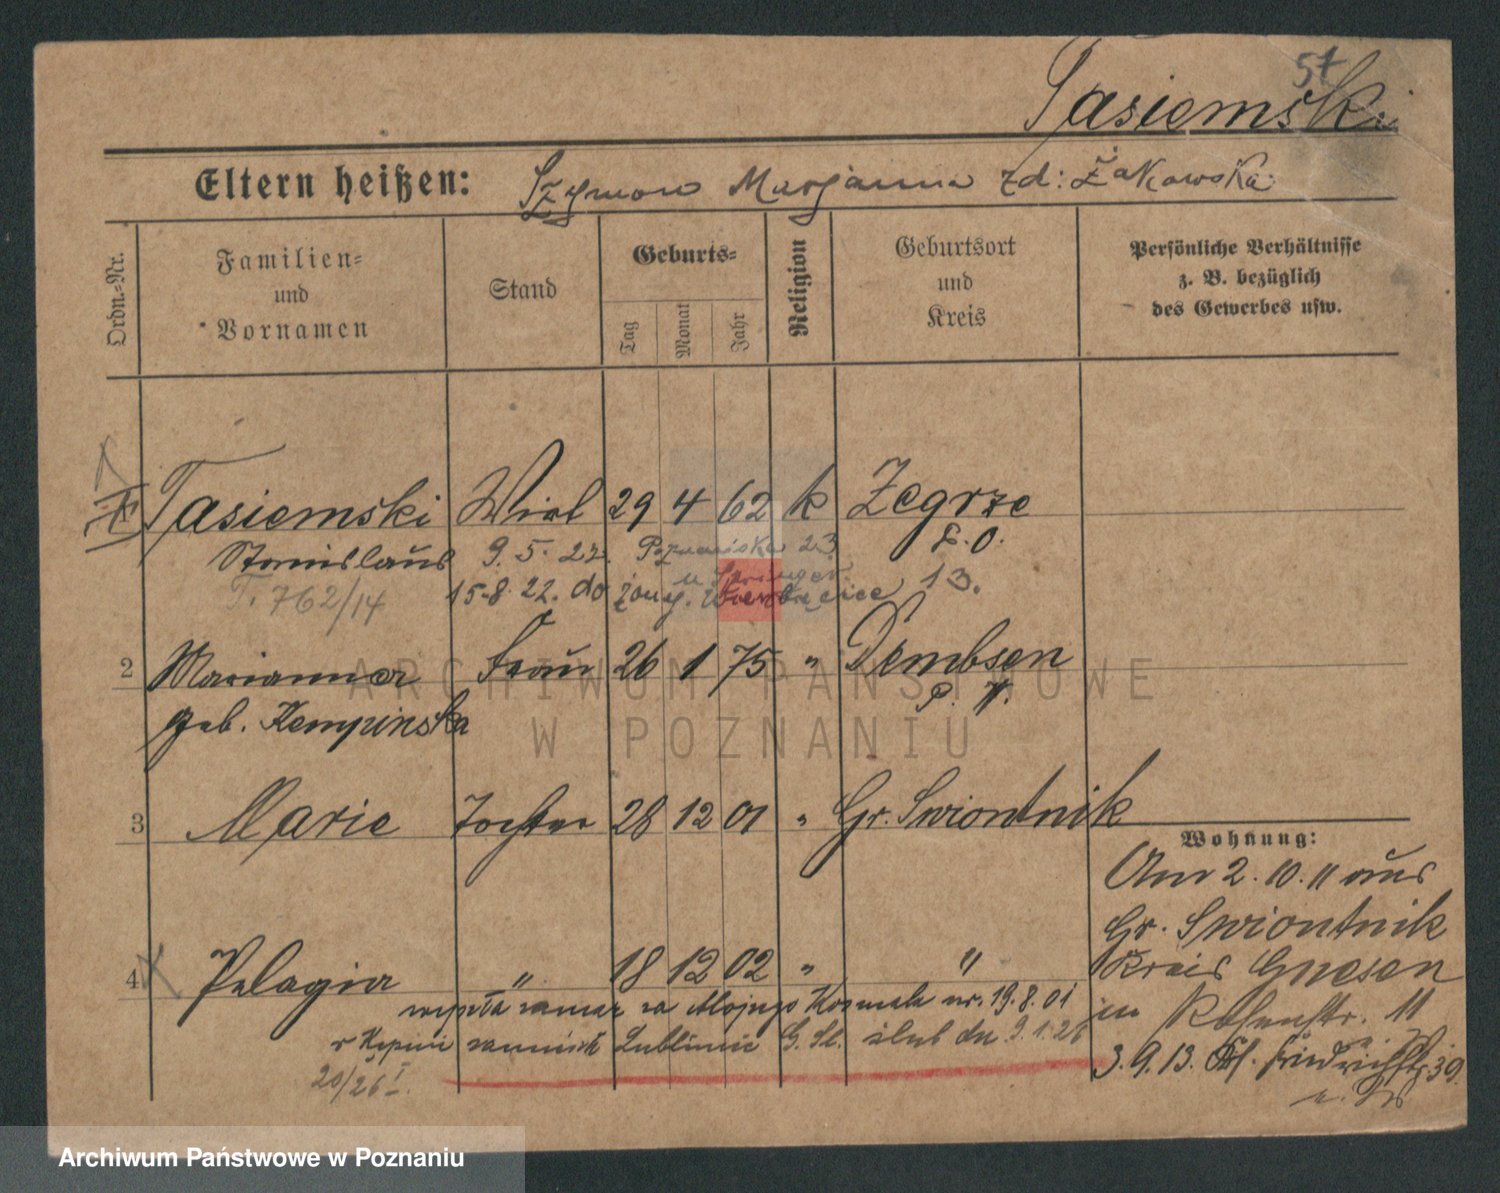 57
Tasiemski
Eltern heißen: Szymon Marjanna zd: Żakowska
Ordn.-Nr.
Familien-
und
Vornamen
Stand
Geburts-
Tag
Monat
Jahr
Religion
Geburtsort
und
Kreis
Persönliche Verhältnisse
z. B. bezüglich
des Gewerbes usw.
Tasiemski Wirt 29 4 62 k Zegrze
Stanislaus 9. 5. 22. Poznańska 23 P. O.
T. 762/14 15-8. 22. do żony. Wierzbięcice 13.
2 Marianna Frau 26 1 75 " Dembsen
geb. Kempinska P. W.
ARCHIWUM PAŃSTWOWE
W POZNANIU
3 Marie Tochter 28 12 01 " Gr. Swiontnik
Wohnung:
Am 2. 10. 11 aus
Gr. Swiontnik
Kreis Gnesen
in Rosenstr. 11
3. 9. 13. Friedrichstr. 39
4 Pelagia " 18 12 02 " "
za mąż za Kozmala ur. 19. 8. 01
w Lubliniec G. Śl. ślub dn 9. 1. 26
20/26 I.
Archiwum Państwowe w Poznaniu